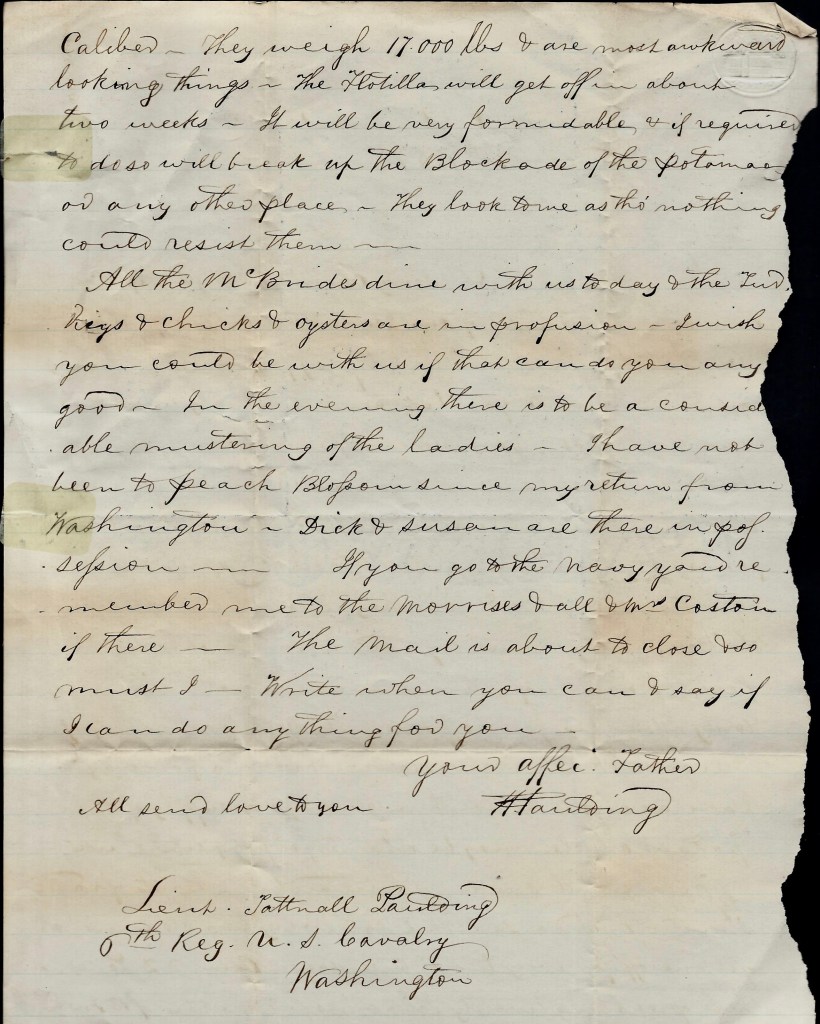 Caliber – They weigh 17.000 lbs & are most awkward
looking things – The Flotilla will get off in about
two weeks – It will be very formidable, & if required
to do so will break up the Blockade of the Potomac
or any other place – They look to me as tho' nothing
could resist them —
All the McBrides dine with us to day & the Tur.
keys & chicks & oysters are in profusion – I wish
you could be with us if that can do you any
good – In the evening there is to be a consid
.able mustering of the ladies – I have not
been to Peach Blossom since my return from
Washington – Dick & Susan are there in pos.
.session — If you go to the Navy yard re.
.member me to the Morrises & all & Mrs Coston
if there — The Mail is about to close & so
must I — Write when you can & say if
I can do any thing for you –
Your affec. Father
All send love to you HPaulding
Lieut. Tattnall Paulding
6th Reg. U. S. Cavalry
Washington